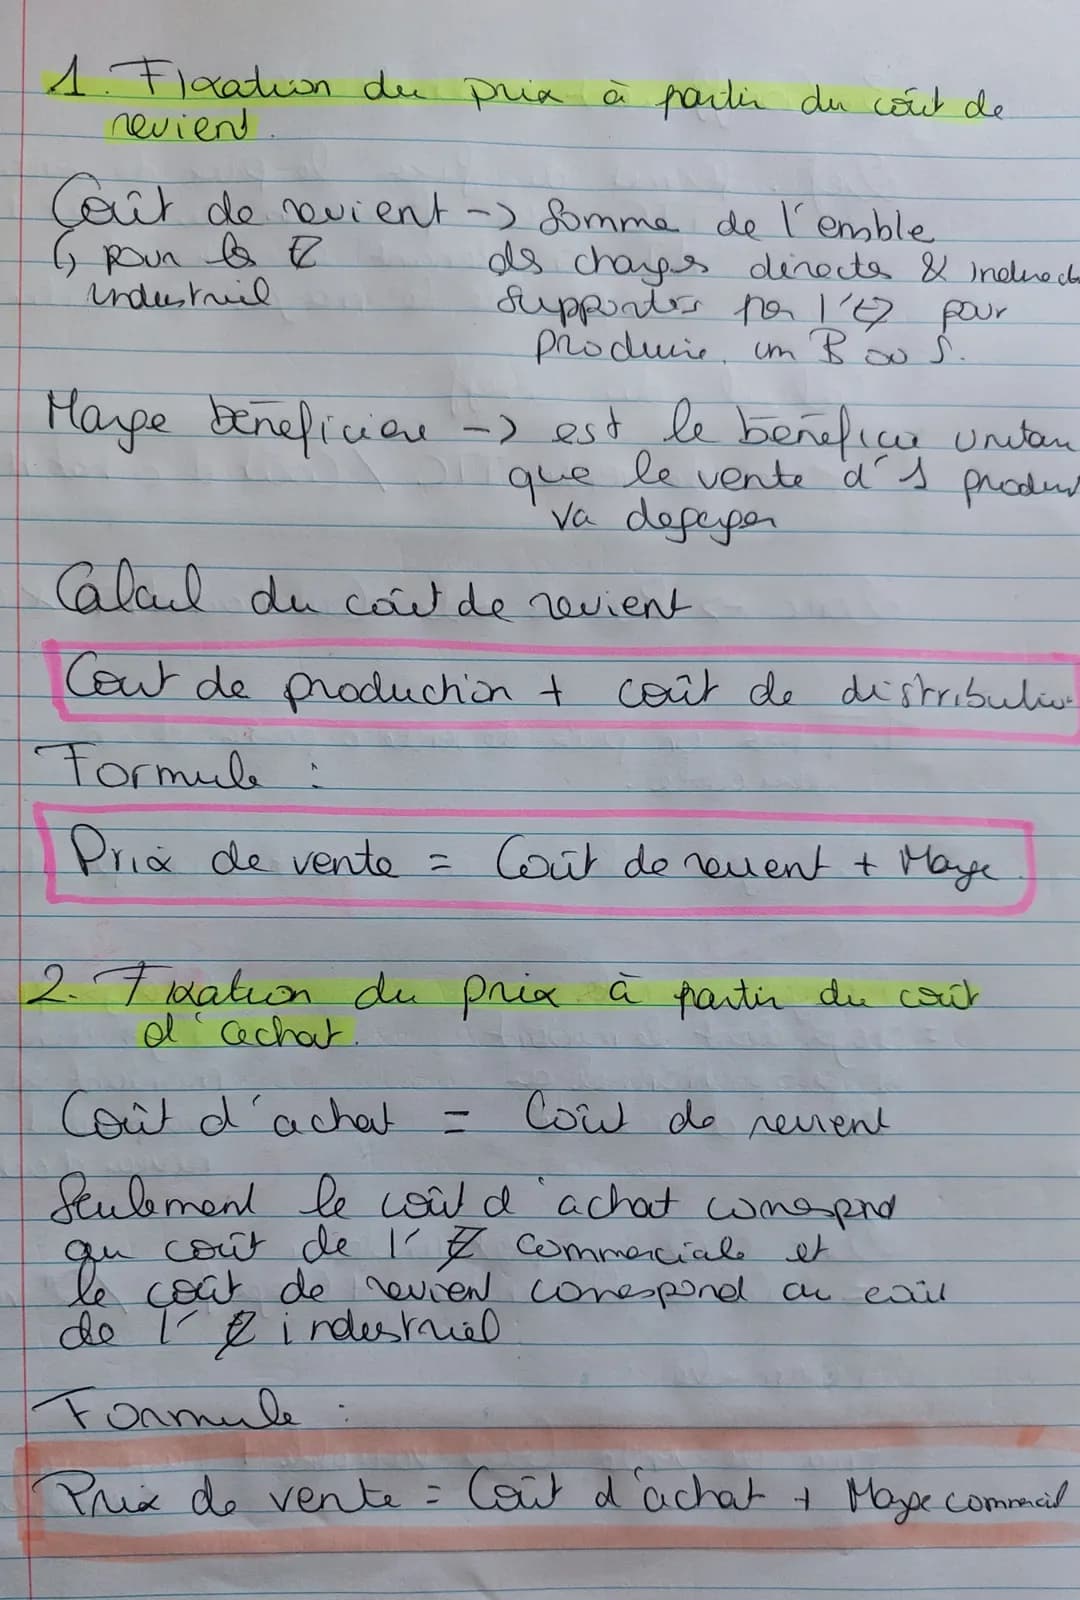 1. Fixation du prix à partir du coût de
revient.
Coût de revient -> Somme de l'emble
↳ pour les E
des charges directes & indirect
industriel
supportés par l'E pour
produire un B ou S.
Marge bénéficiere -> est le bénéfice unitai
que le vente d'1 produi
va degager
Calcul du coût de revient
Cout de production + coût de distribution
Formule :
Prix de vente = Coût de revient + Marge
2. Fixation du prix à partir du coût
d'achat.
Coût d'achat = Coût de revient
Seulement le coût d'achat correspond
au coût de l'E commerciale et
le coût de revient correspond au coût
de l'E industriel
Formule :
Prix de vente = Coût d'achat + Marge commercial